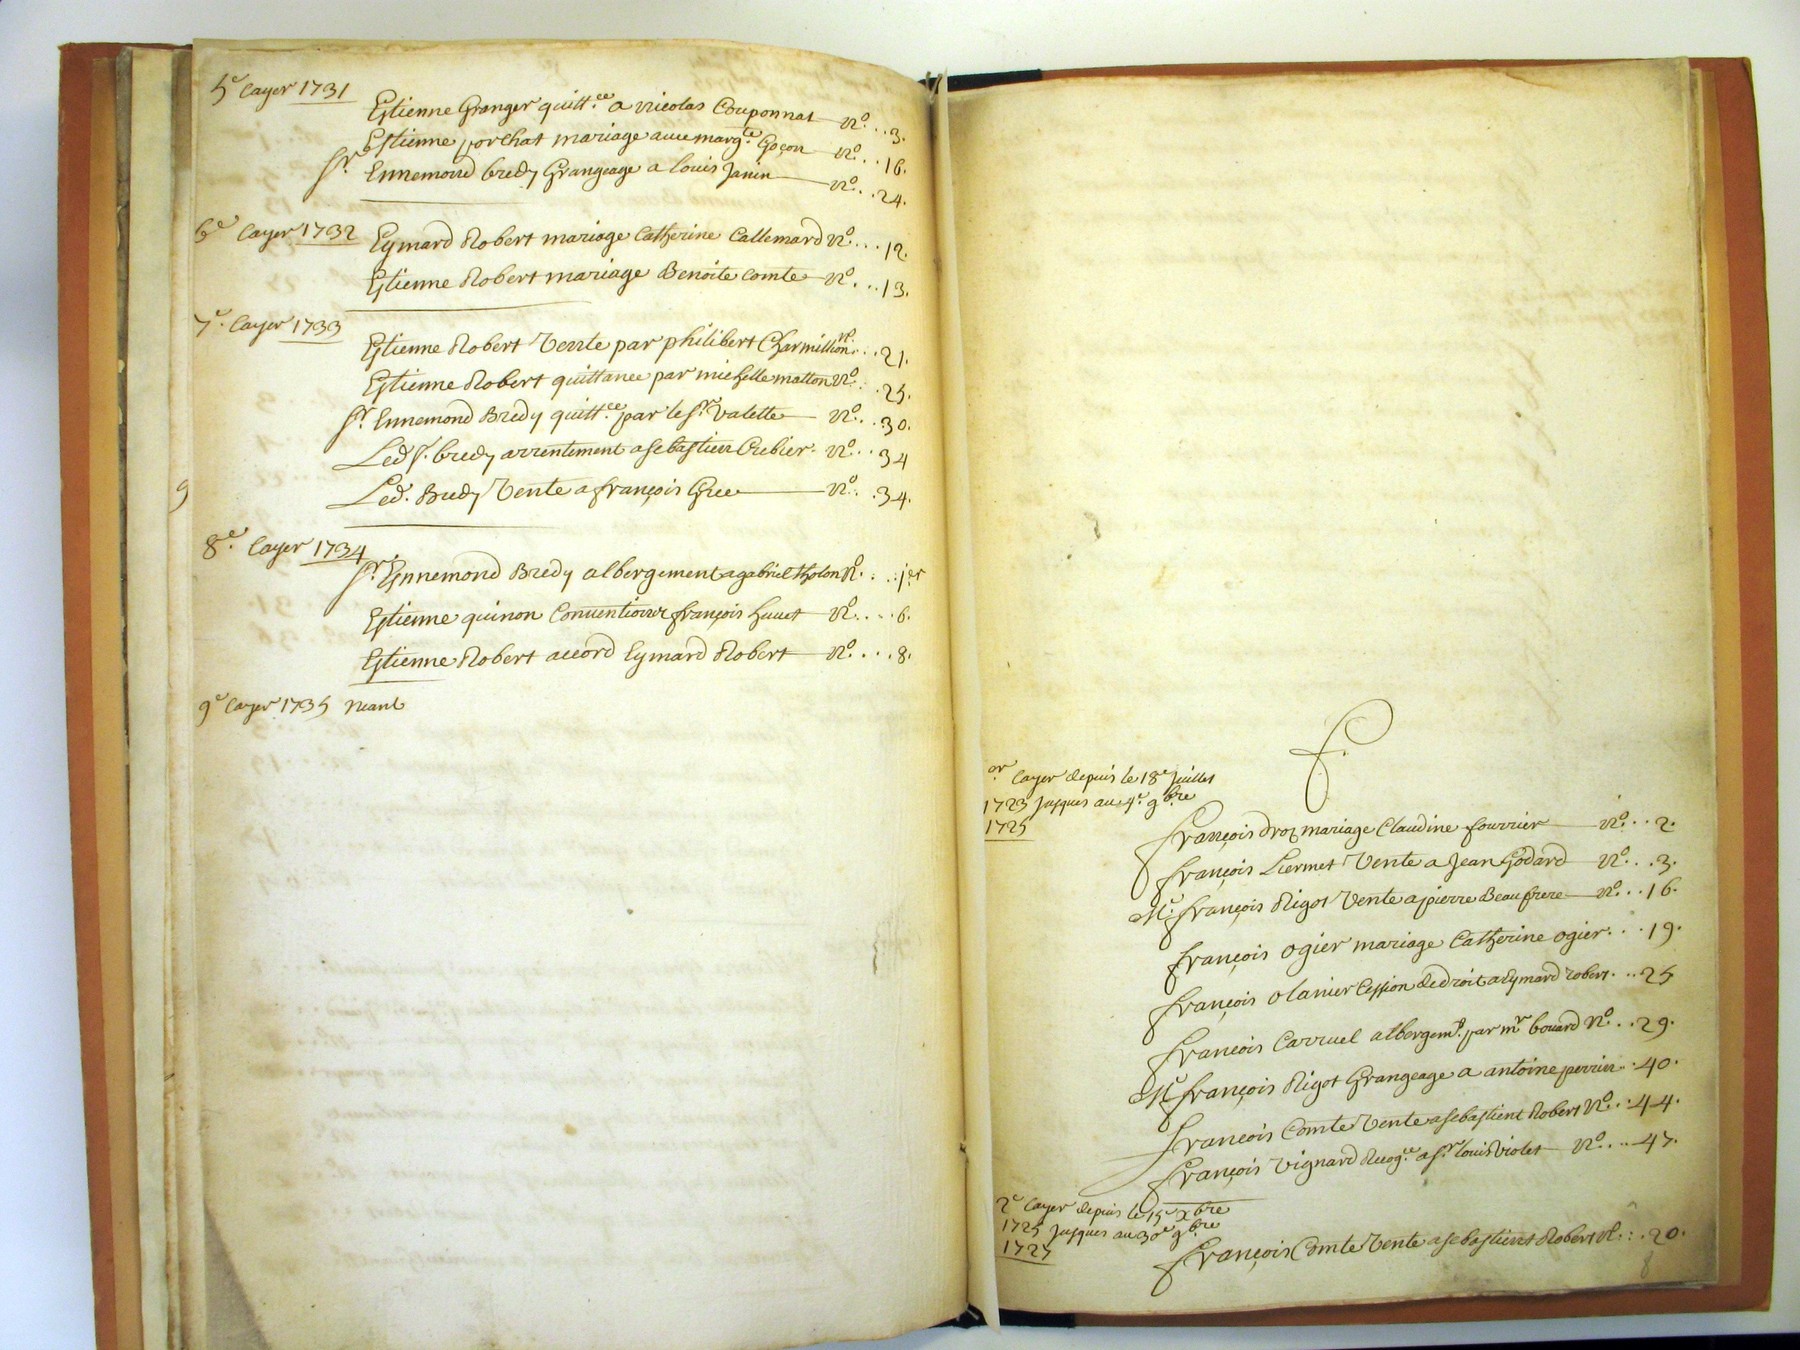 5e Cayer 1731
Estienne Granger quitt.ce a Nicolas Couponnat No...3.
Estienne porchat mariage avec marg.te Goçon No..16.
Sr. Ennemond bredy Grangeage a louis Janin No..24.
6e Cayer 1732 Eymard Robert mariage Catherine Callemard No...12.
Estienne Robert mariage Benoite Comte No...13.
7e. Cayer 1733
Estienne Robert Vente par philibert Charmillion No...21.
Estienne Robert quittance par michelle matton No..25.
Sr. Ennemond Bredy quitt.ce par le Sr. Valette No..30.
Led. Sr. bredy arrentement a sebastien Crebier. No..34
Led. Bredy Vente a françois Gree No..34.
9
8e. Cayer 1734
Sr. Ennemond Bredy albergement a gabriel tholon No...1er
Estienne quinon Convention françois huuet No....6.
Estienne Robert accord Eymard Robert No....8.
9e Cayer 1735 neant
F.
er Cayer depuis le 18e Juillet
1723 Jusques au 4e. 9bre
1725
françois droz mariage Claudine fourrier No...2.
françois Liermet Vente a Jean Godard No...3.
Me. françois Rigot Vente a pierre Beaufrere No...16.
françois ogier mariage Catherine ogier...19.
françois olanier Cession de droit a Eymard robert...25
françois Carruel albergemt. par mr bouard No...29.
Me françois Rigot Grangeage a antoine perrier..40.
françois Comte Vente a sebastient Robert No...44.
françois Vignard Recog.ce a Sr. louis Violet No....47.
2e Cayer depuis le 15e Xbre
1725 Jusques au 30e 9bre
1727
françois Comte Vente a sebastient Robert No...20.
8